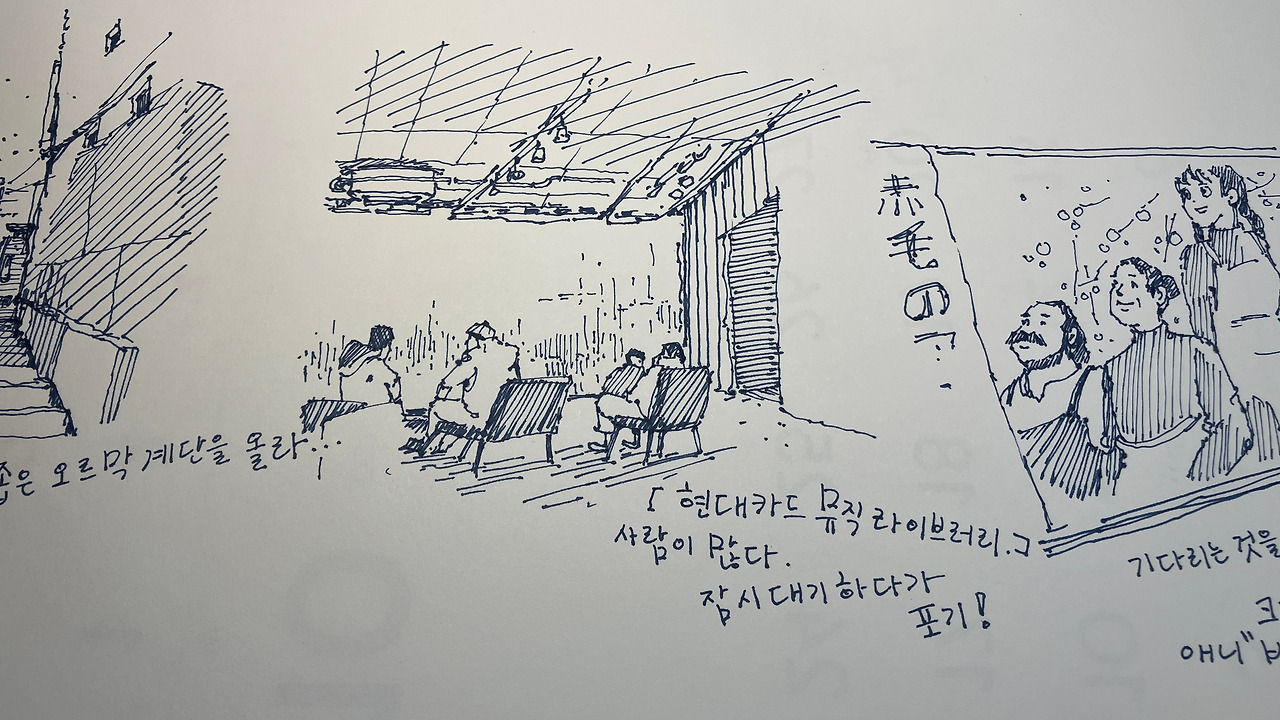 좁은 오르막 계단을 올라...
「현대카드 뮤직 라이브러리.」
사람이 많다.
잠시 대기하다가
포기!
赤毛の
기다리는 것을
애니"